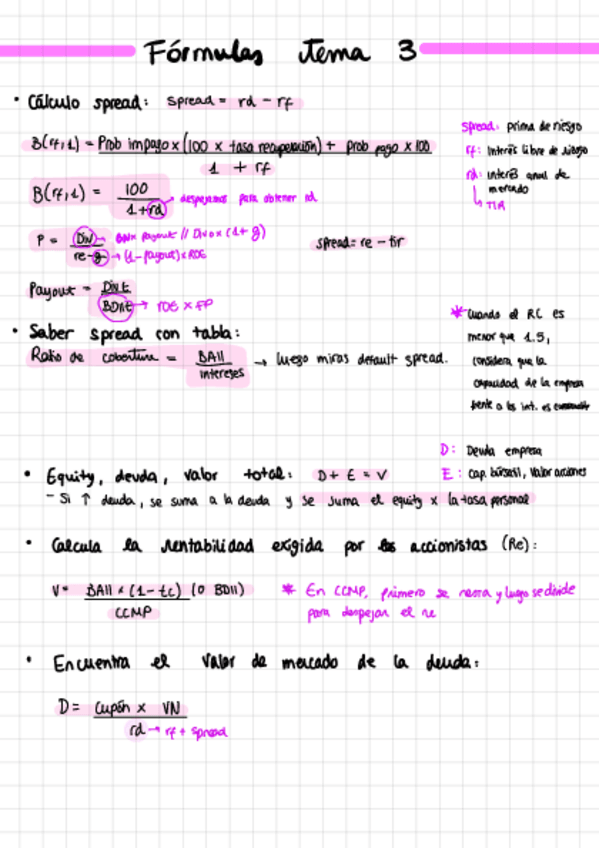 Fórmulas tema 3
• Cálculo spread: spread = rd - rf
spread: prima de riesgo
rf: Interés libre de riesgo
rd: interés anual de mercado
↳ TIR
B(rf,1) = Prob impago x (100 x tasa recuperación) + prob pago x 100
1 + rf
B(rf,1) = 100
1+rd → despejamos para obtener rd
P = Div → BN x payout // Div0 x (1+g)
re-g → (1-payout) x ROE
spread = re - tir
Payout = Div t
BDN t → ROE x FP
• Saber spread con tabla:
Ratio de cobertura = BAII → luego miras default spread.
intereses
* Cuando el RC es
menor que 1.5,
considera que la
capacidad de la empresa
frente a los int. es
D: Deuda empresa
E: Cap. bursátil, Valor acciones
• Equity, deuda, valor total: D + E = V
- Si ↑ deuda, se suma a la deuda y se suma el equity x la tasa personal
• Calcula la rentabilidad exigida por los accionistas (Re):
V = BAII x (1-tc) (o BDII)
CCMP
* En CCMP, primero se resta y luego se divide
para despejar el re
• Encuentra el valor de mercado de la deuda:
D = Cupón x VN
rd → rf + spread